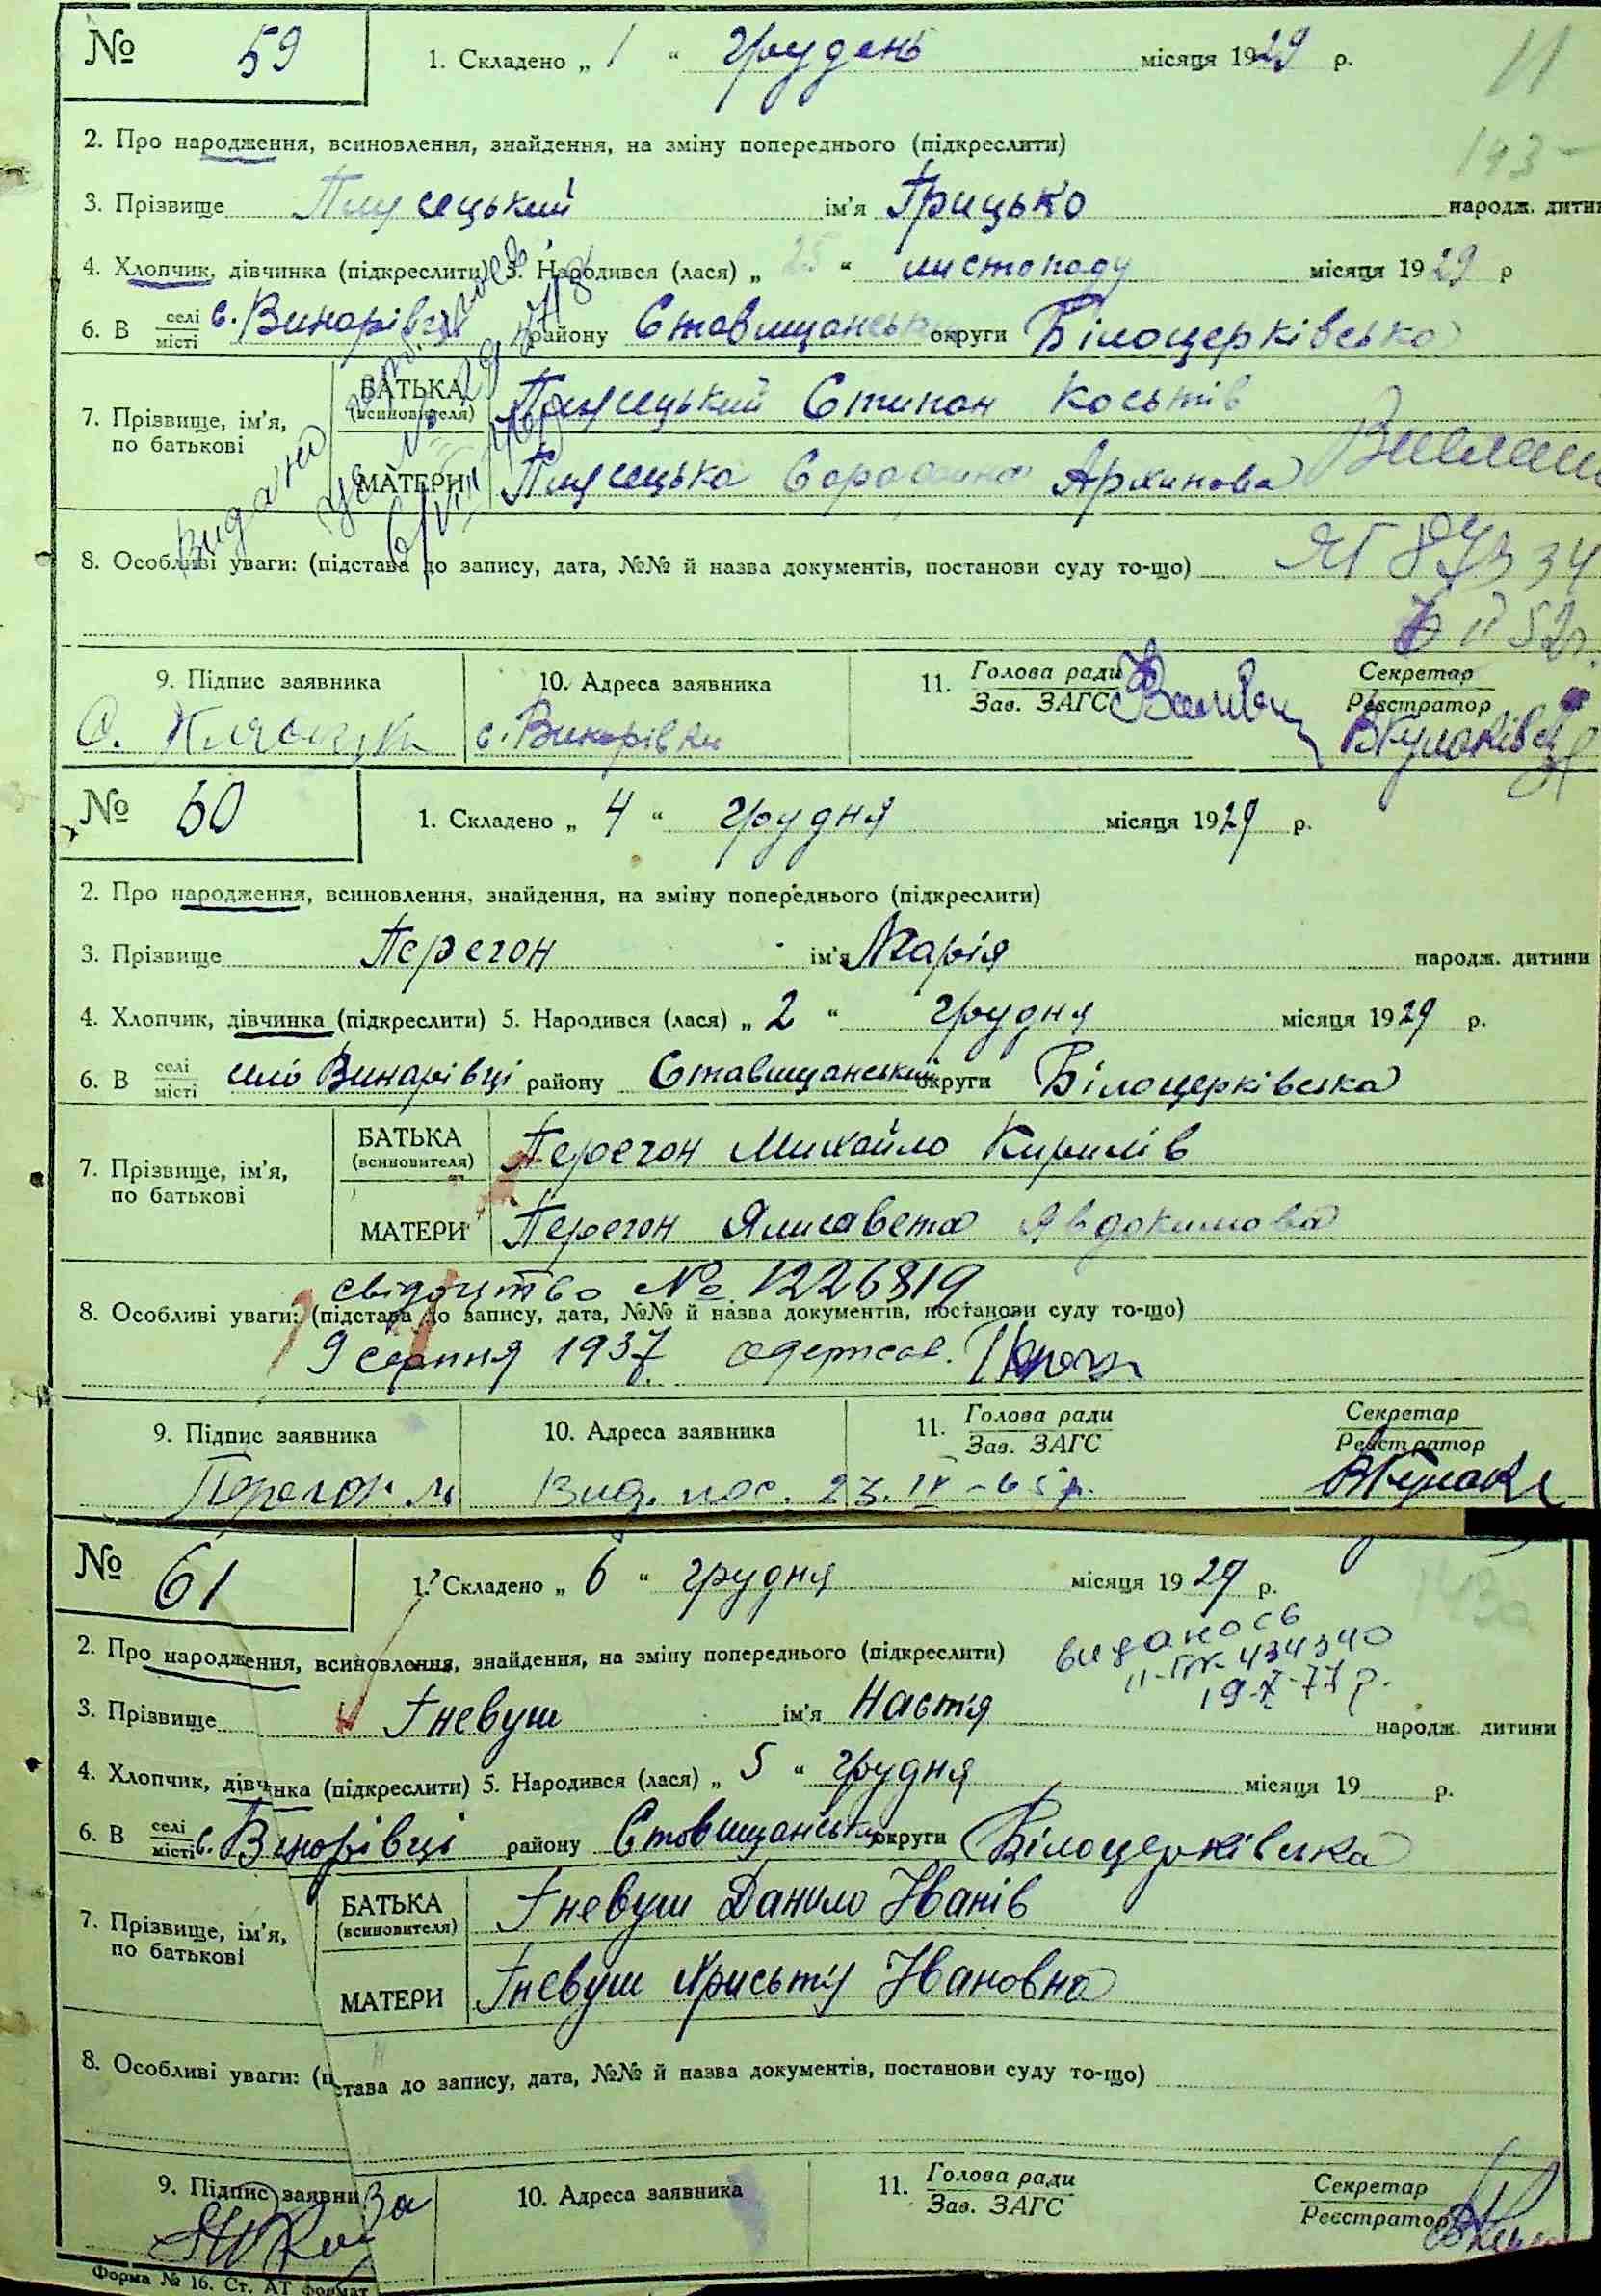 № 59 1. Складено „ 1 “ грудень місяця 1929 р. 11
2. Про народження, всиновлення, знайдення, на зміну попереднього (підкреслити) 143
3. Прізвище ім'я Грицько народж. дити
4. Хлопчик, дівчинка (підкреслити) 5. Народився (лася) „ 25 “ листопаду місяця 1929 р
6. В селі місті с. Винарівці району Ставищанськ округи Білоцерківська
7. Прізвище, ім'я, по батькові БАТЬКА (всиновителя) Степан Костів
МАТЕРИ Архипова
Видано
8. Особливі уваги: (підстава до запису, дата, №№ й назва документів, постанови суду то-що)
52р.
9. Підпис заявника 10. Адреса заявника 11. Голова ради Зав. ЗАГС Секретар Реєстратор
с. Винарівка
№ 60 1. Складено „ 4 “ грудня місяця 1929 р.
2. Про народження, всиновлення, знайдення, на зміну попереднього (підкреслити)
3. Прізвище Перегон ім'я Марія народж. дитини
4. Хлопчик, дівчинка (підкреслити) 5. Народився (лася) „ 2 “ грудня місяця 1929 р.
6. В селі місті село Винарівці району Ставищанський округи Білоцерківська
7. Прізвище, ім'я, по батькові БАТЬКА (всиновителя) Перегон Михайло Кирилів
МАТЕРИ Перегон Ялисавета Явдокимова
свідоцтво № 1226819
8. Особливі уваги: (підстава до запису, дата, №№ й назва документів, постанови суду то-що)
9 серпня 1937 одержав.
9. Підпис заявника 10. Адреса заявника 11. Голова ради Зав. ЗАГС Секретар Реєстратор
Перегон М. Вид. пов. 23.IV-65р.
№ 61 1. Складено „ 6 “ грудня місяця 1929 р. 143а
2. Про народження, всиновлення, знайдення, на зміну попереднього (підкреслити) видалось
434340
19-X-77 р.
3. Прізвище Гневуш ім'я Настя народж. дитини
4. Хлопчик, дівчинка (підкреслити) 5. Народився (лася) „ 5 “ грудня місяця 19 р.
6. В селі місті с. Винорівці району Ставищанськ округи Білоцерківська
7. Прізвище, ім'я, по батькові БАТЬКА (всиновителя) Гневуш Данило Иванів
МАТЕРИ Гневуш Иванова
8. Особливі уваги: (п става до запису, дата, №№ й назва документів, постанови суду то-що)
9. Підпис заявни 10. Адреса заявника 11. Голова ради Зав. ЗАГС Секретар Реєстратор
За
Форма № 16. Ст. АТ формат